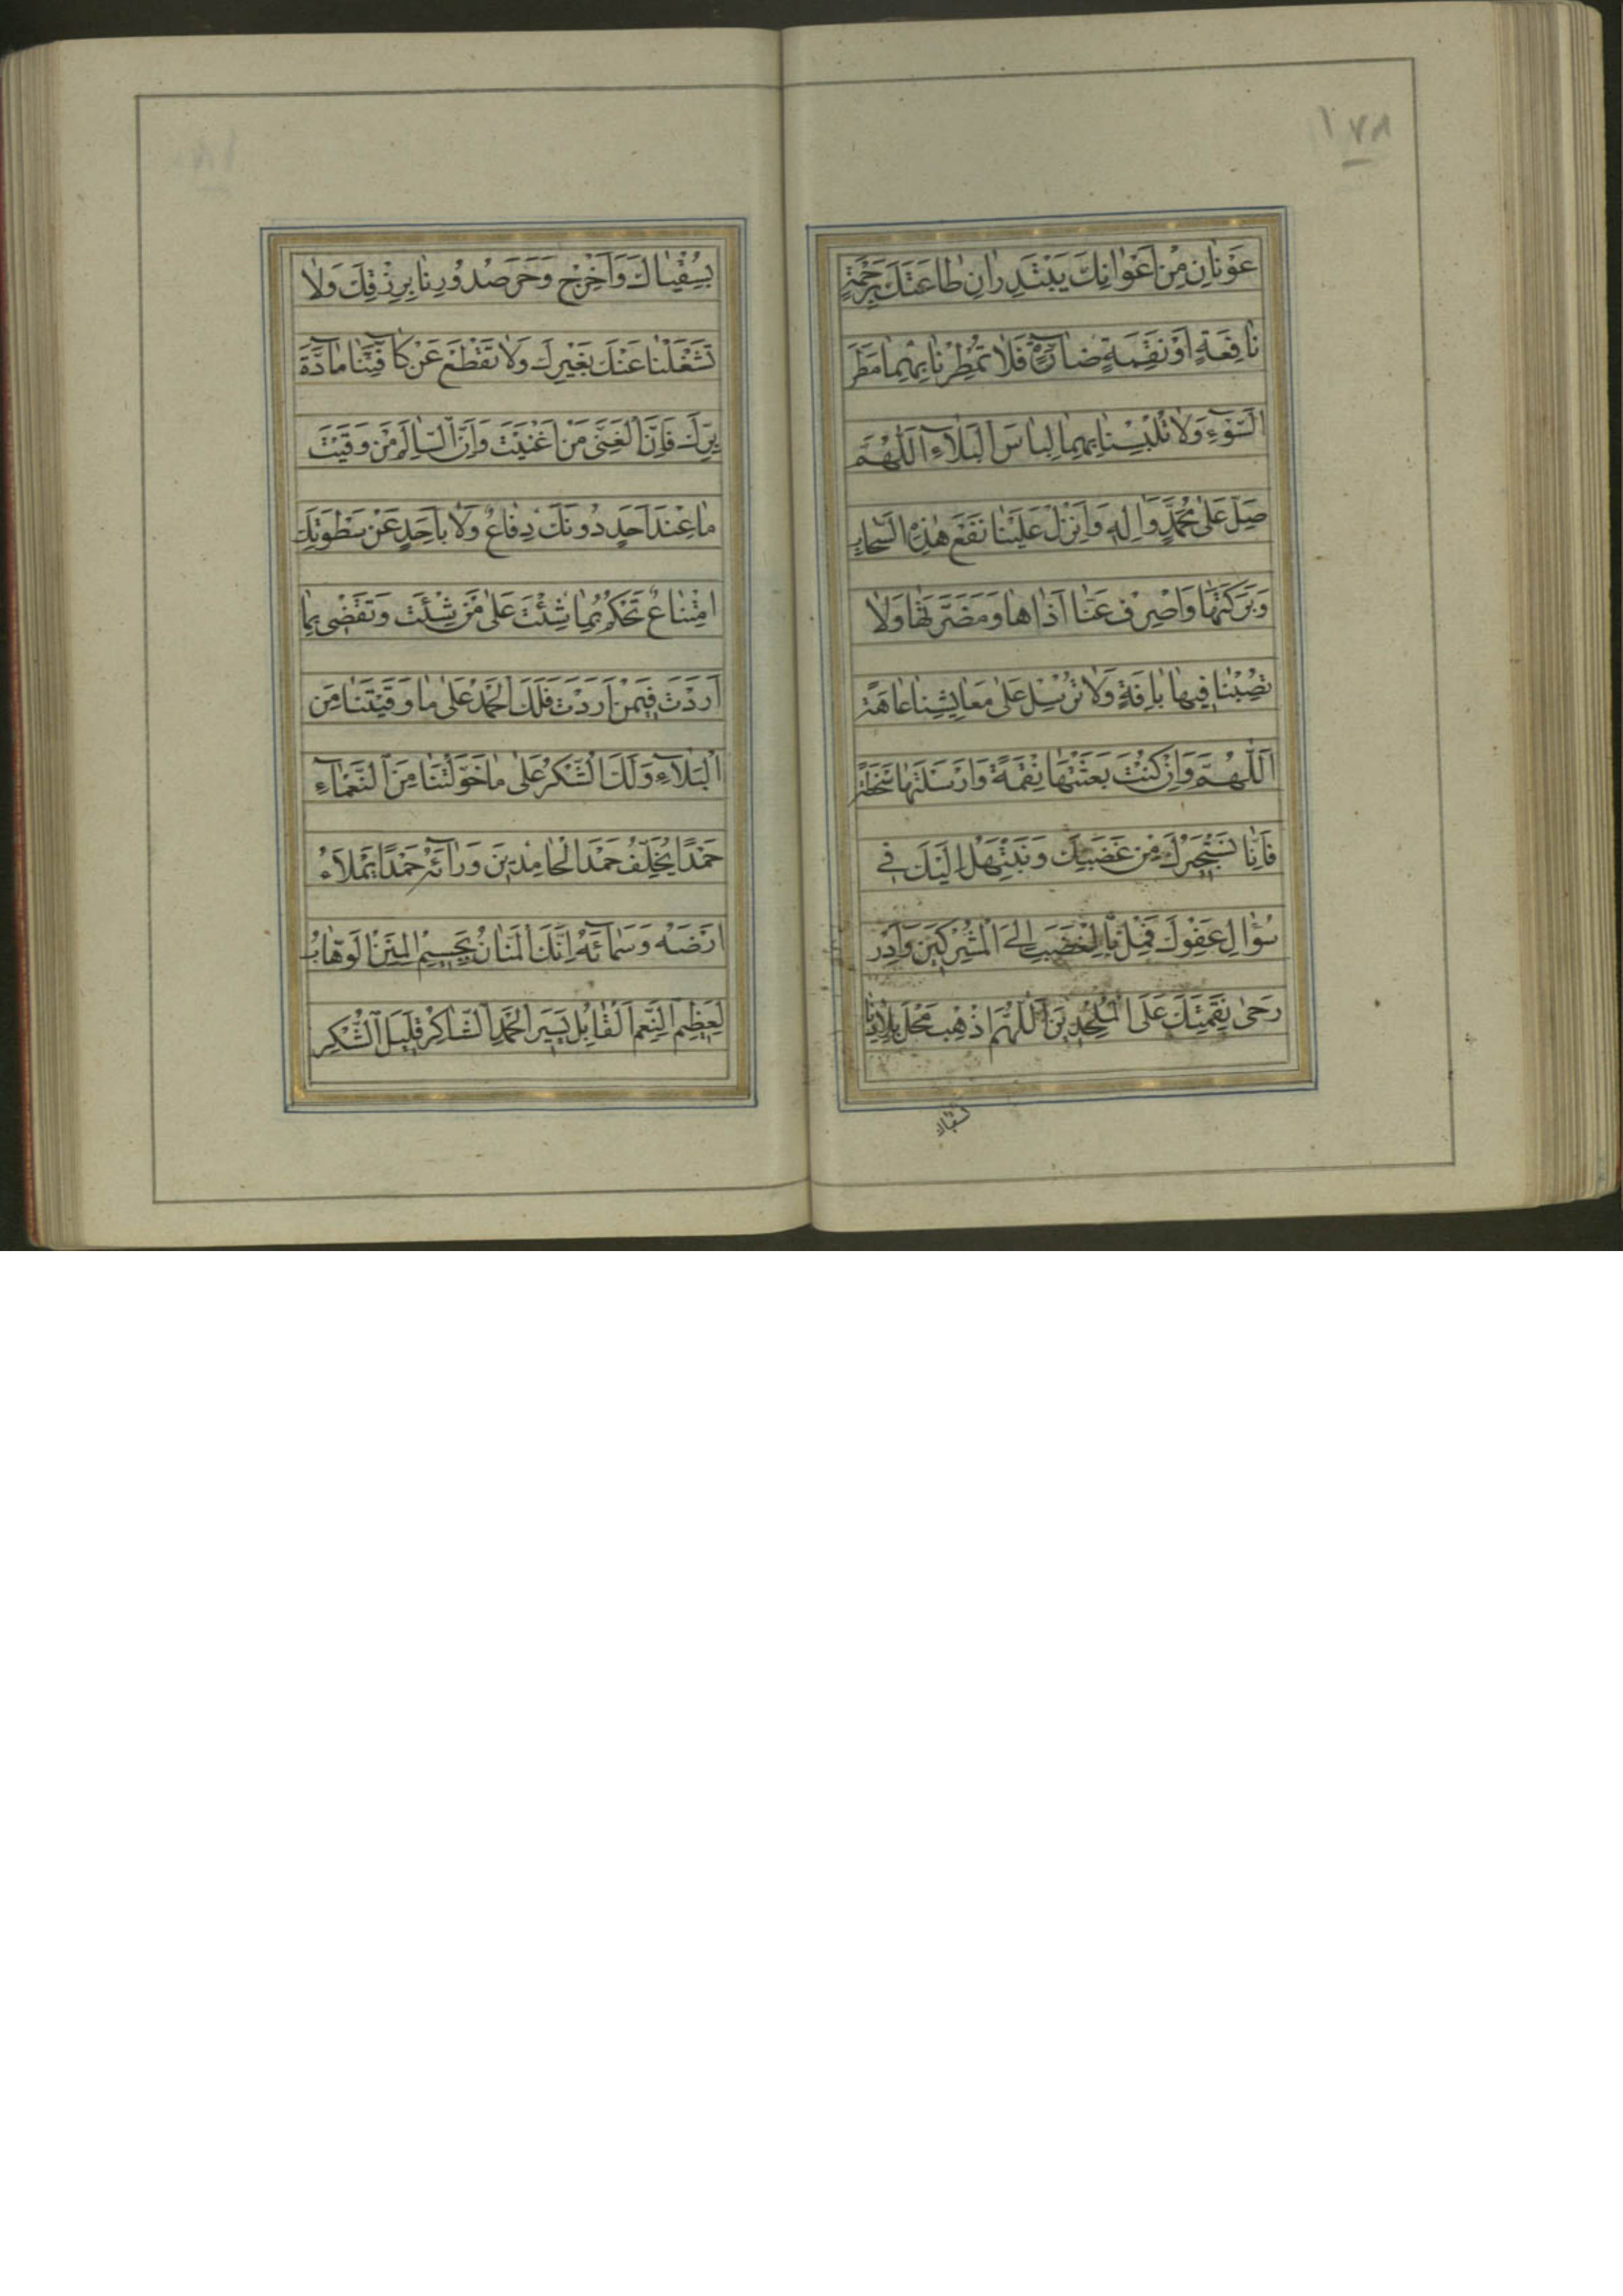 ١٧٨
عَوْنَانِ مِنْ اَعْوَانِكَ يَبْتَدِرَانِ طَاعَتَكَ بِرَحْمَةٍ
نَافِعَةٍ اَوْ نَقِمَةٍ ضَارَّةٍ فَلَا تُمْطِرْنَا بِهِمَا مَطَرَ
السَّوْءِ وَلَا تُلْبِسْنَا بِهِمَا لِبَاسَ الْبَلَآءِ اَللّٰهُمَّ
صَلِّ عَلٰى مُحَمَّدٍ وَاٰلِهِ وَاَنْزِلْ عَلَيْنَا نَفْعَ هٰذِهِ السَّحَابِ
وَبَرَكَتَهَا وَاصْرِفْ عَنَّا اَذَاهَا وَمَضَرَّتَهَا وَلَا
تُصِبْنَا فِيهَا بِاٰفَةٍ وَلَا تُرْسِلْ عَلٰى مَعَايِشِنَا عَاهَةً
اَللّٰهُمَّ وَاِنْ كُنْتَ بَعَثْتَهَا نِقْمَةً وَاَرْسَلْتَهَا سَخْطَةً
فَاِنَّا نَسْتَجِيرُكَ مِنْ غَضَبِكَ وَنَبْتَهِلُ اِلَيْكَ فِي
سُؤَالِ عَفْوِكَ فَمِلْ بِالْغَضَبِ اِلَى الْمُشْرِكِينَ وَاَدِرْ
رَحٰى نِقْمَتِكَ عَلَى الْمُلْحِدِينَ اَللّٰهُمَّ اذْهِبْ مَحْلَ بِلَادِنَا
بِسُقْيَاكَ وَاَخْرِجْ وَحَرَ صُدُورِنَا بِرِزْقِكَ وَلَا
تَشْغَلْنَا عَنْكَ بِغَيْرِكَ وَلَا تَقْطَعْ عَنْ كَآفَّتِنَا مَادَّةَ
بِرِّكَ فَاِنَّ الْغَنِيَّ مَنْ اَغْنَيْتَ وَاِنَّ السَّالِمَ مَنْ وَقَيْتَ
مَا عِنْدَ اَحَدٍ دُونَكَ دِفَاعٌ وَلَا بِاَحَدٍ عَنْ سَطْوَتِكَ
امْتِنَاعٌ تَحْكُمُ بِمَا شِئْتَ عَلٰى مَنْ شِئْتَ وَتَقْضِي بِمَا
اَرَدْتَ فِيمَنْ اَرَدْتَ فَلَكَ الْحَمْدُ عَلٰى مَا وَقَيْتَنَا مِنَ
الْبَلَآءِ وَلَكَ الشُّكْرُ عَلٰى مَا خَوَّلْتَنَا مِنَ النَّعْمَآءِ
حَمْدًا يُخَلِّفُ حَمْدَ الْحَامِدِينَ وَرَآئَهُ حَمْدًا يَمْلَاءُ
اَرْضَهُ وَسَمَآئَهُ اِنَّكَ الْمَنَّانُ بِجَسِيمِ الْمِنَنِ الْوَهَّابُ
لِعَظِيمِ النِّعَمِ الْقَابِلُ يَسِيرَ الْحَمْدِ الشَّاكِرُ قَلِيلَ الشُّكْرِ